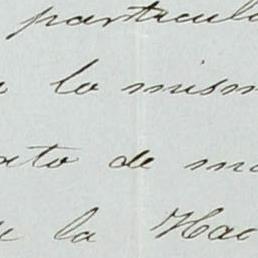 particula
a lo mism
ato de ma
e la Hac